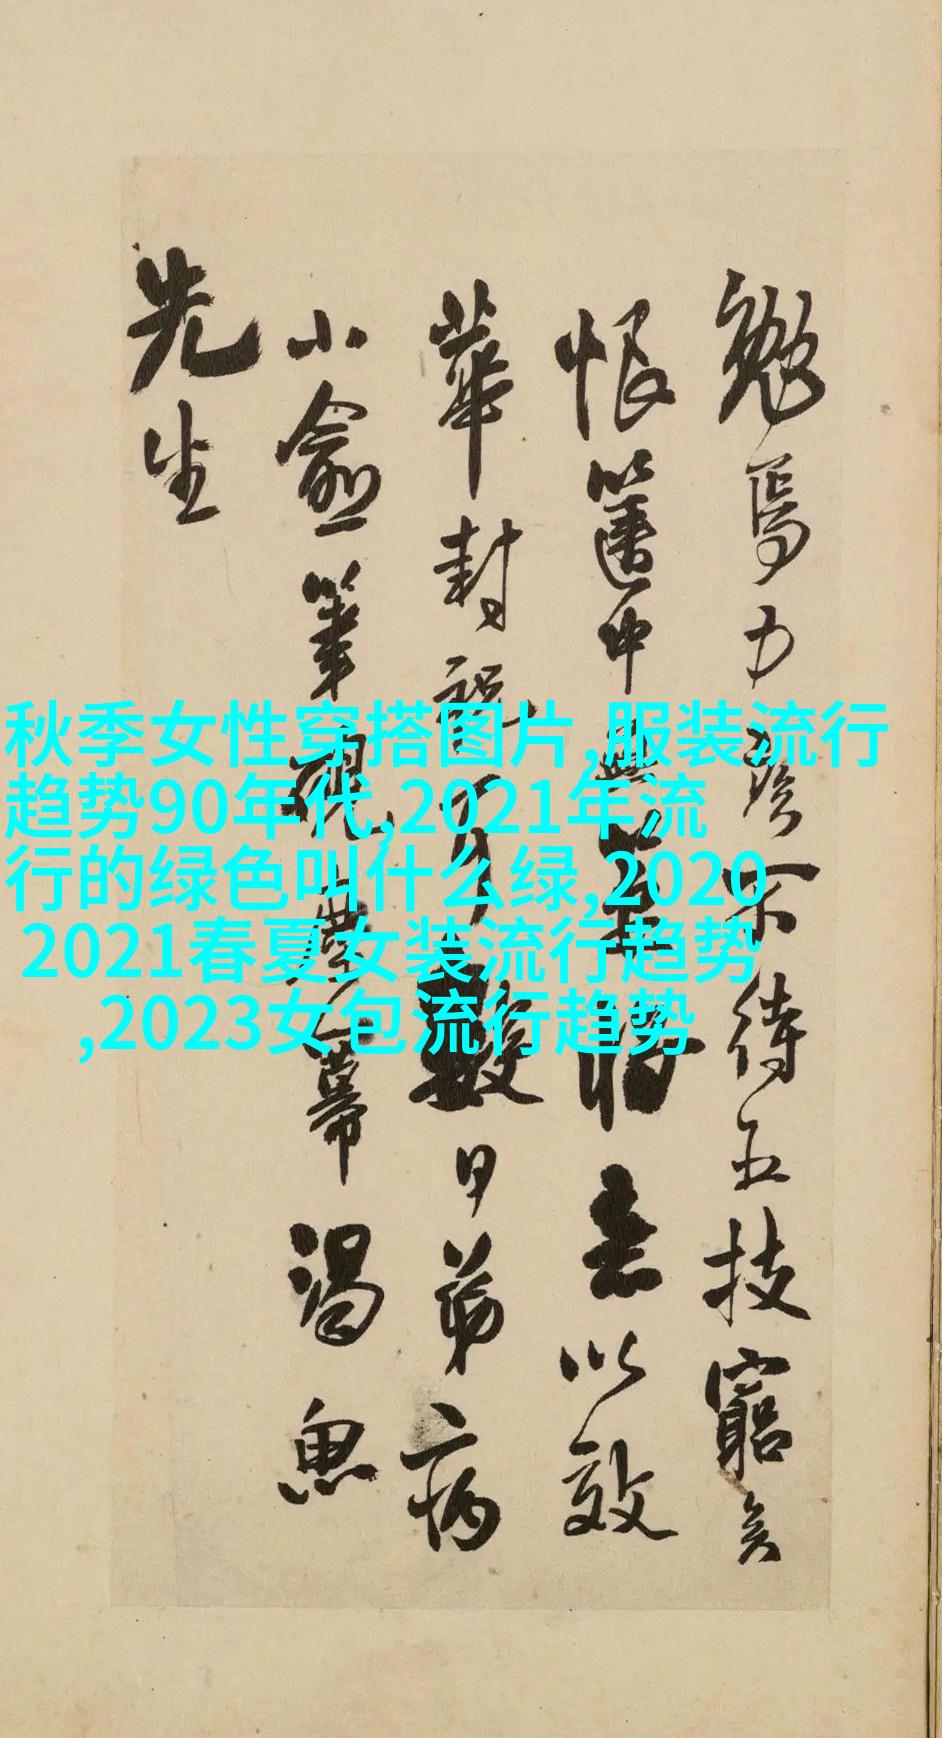 勉焉力疲不待五技窮矣
恨篋中無以效
華封祝一月數日弟病
小愈筆硯塵羃渴魚
先生
秋季女性穿搭图片,服装流行
趋势90年代,2021年流
行的绿色叫什么绿,2020
2021春夏女装流行趋势
,2023女包流行趋势